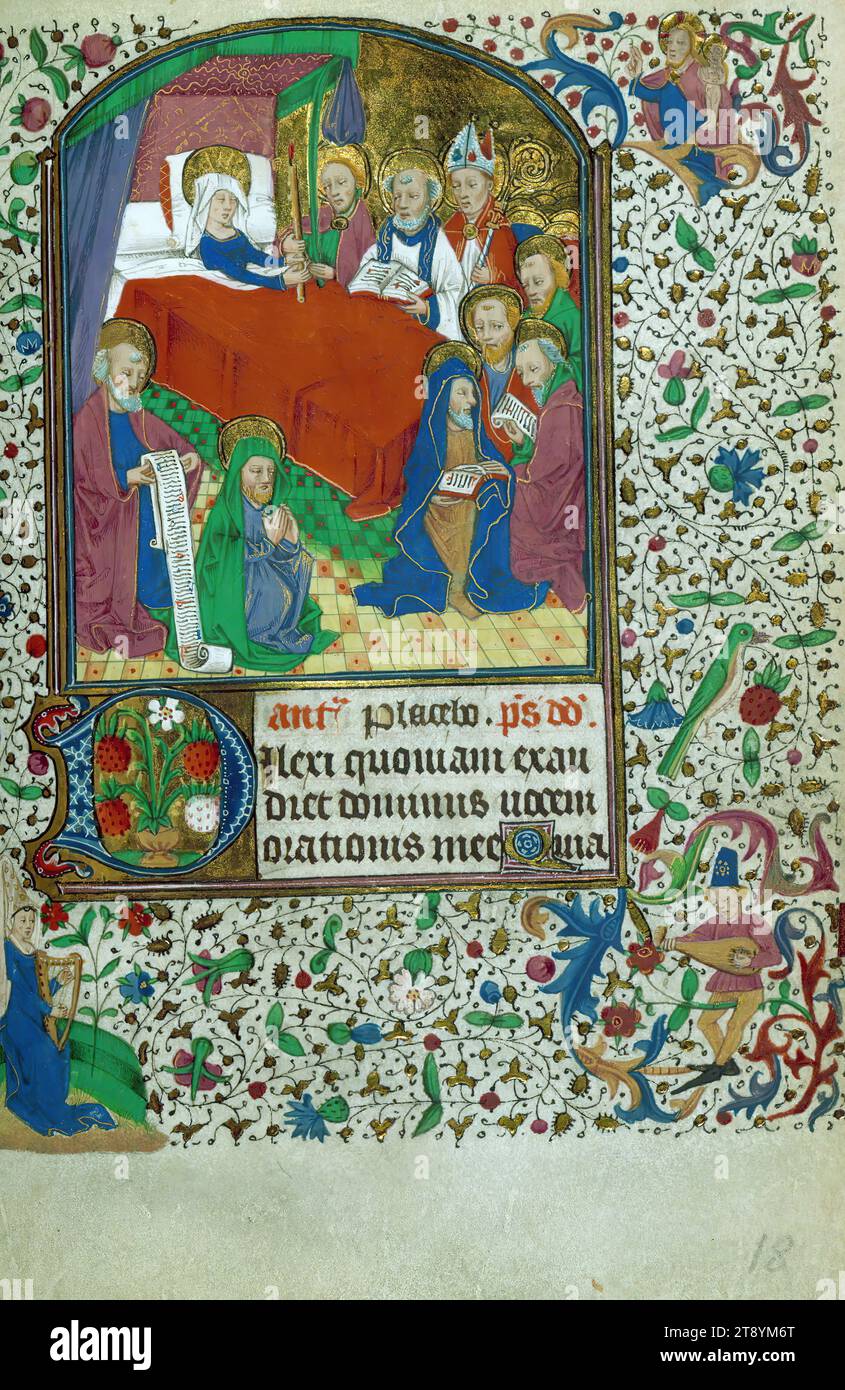 antʳ placebo. ps dd.
Dilexi quoniam exau
diet dominus uocem
orationis mee Quia
18
alamy
Image ID: 2T8YM6T
www.alamy.com